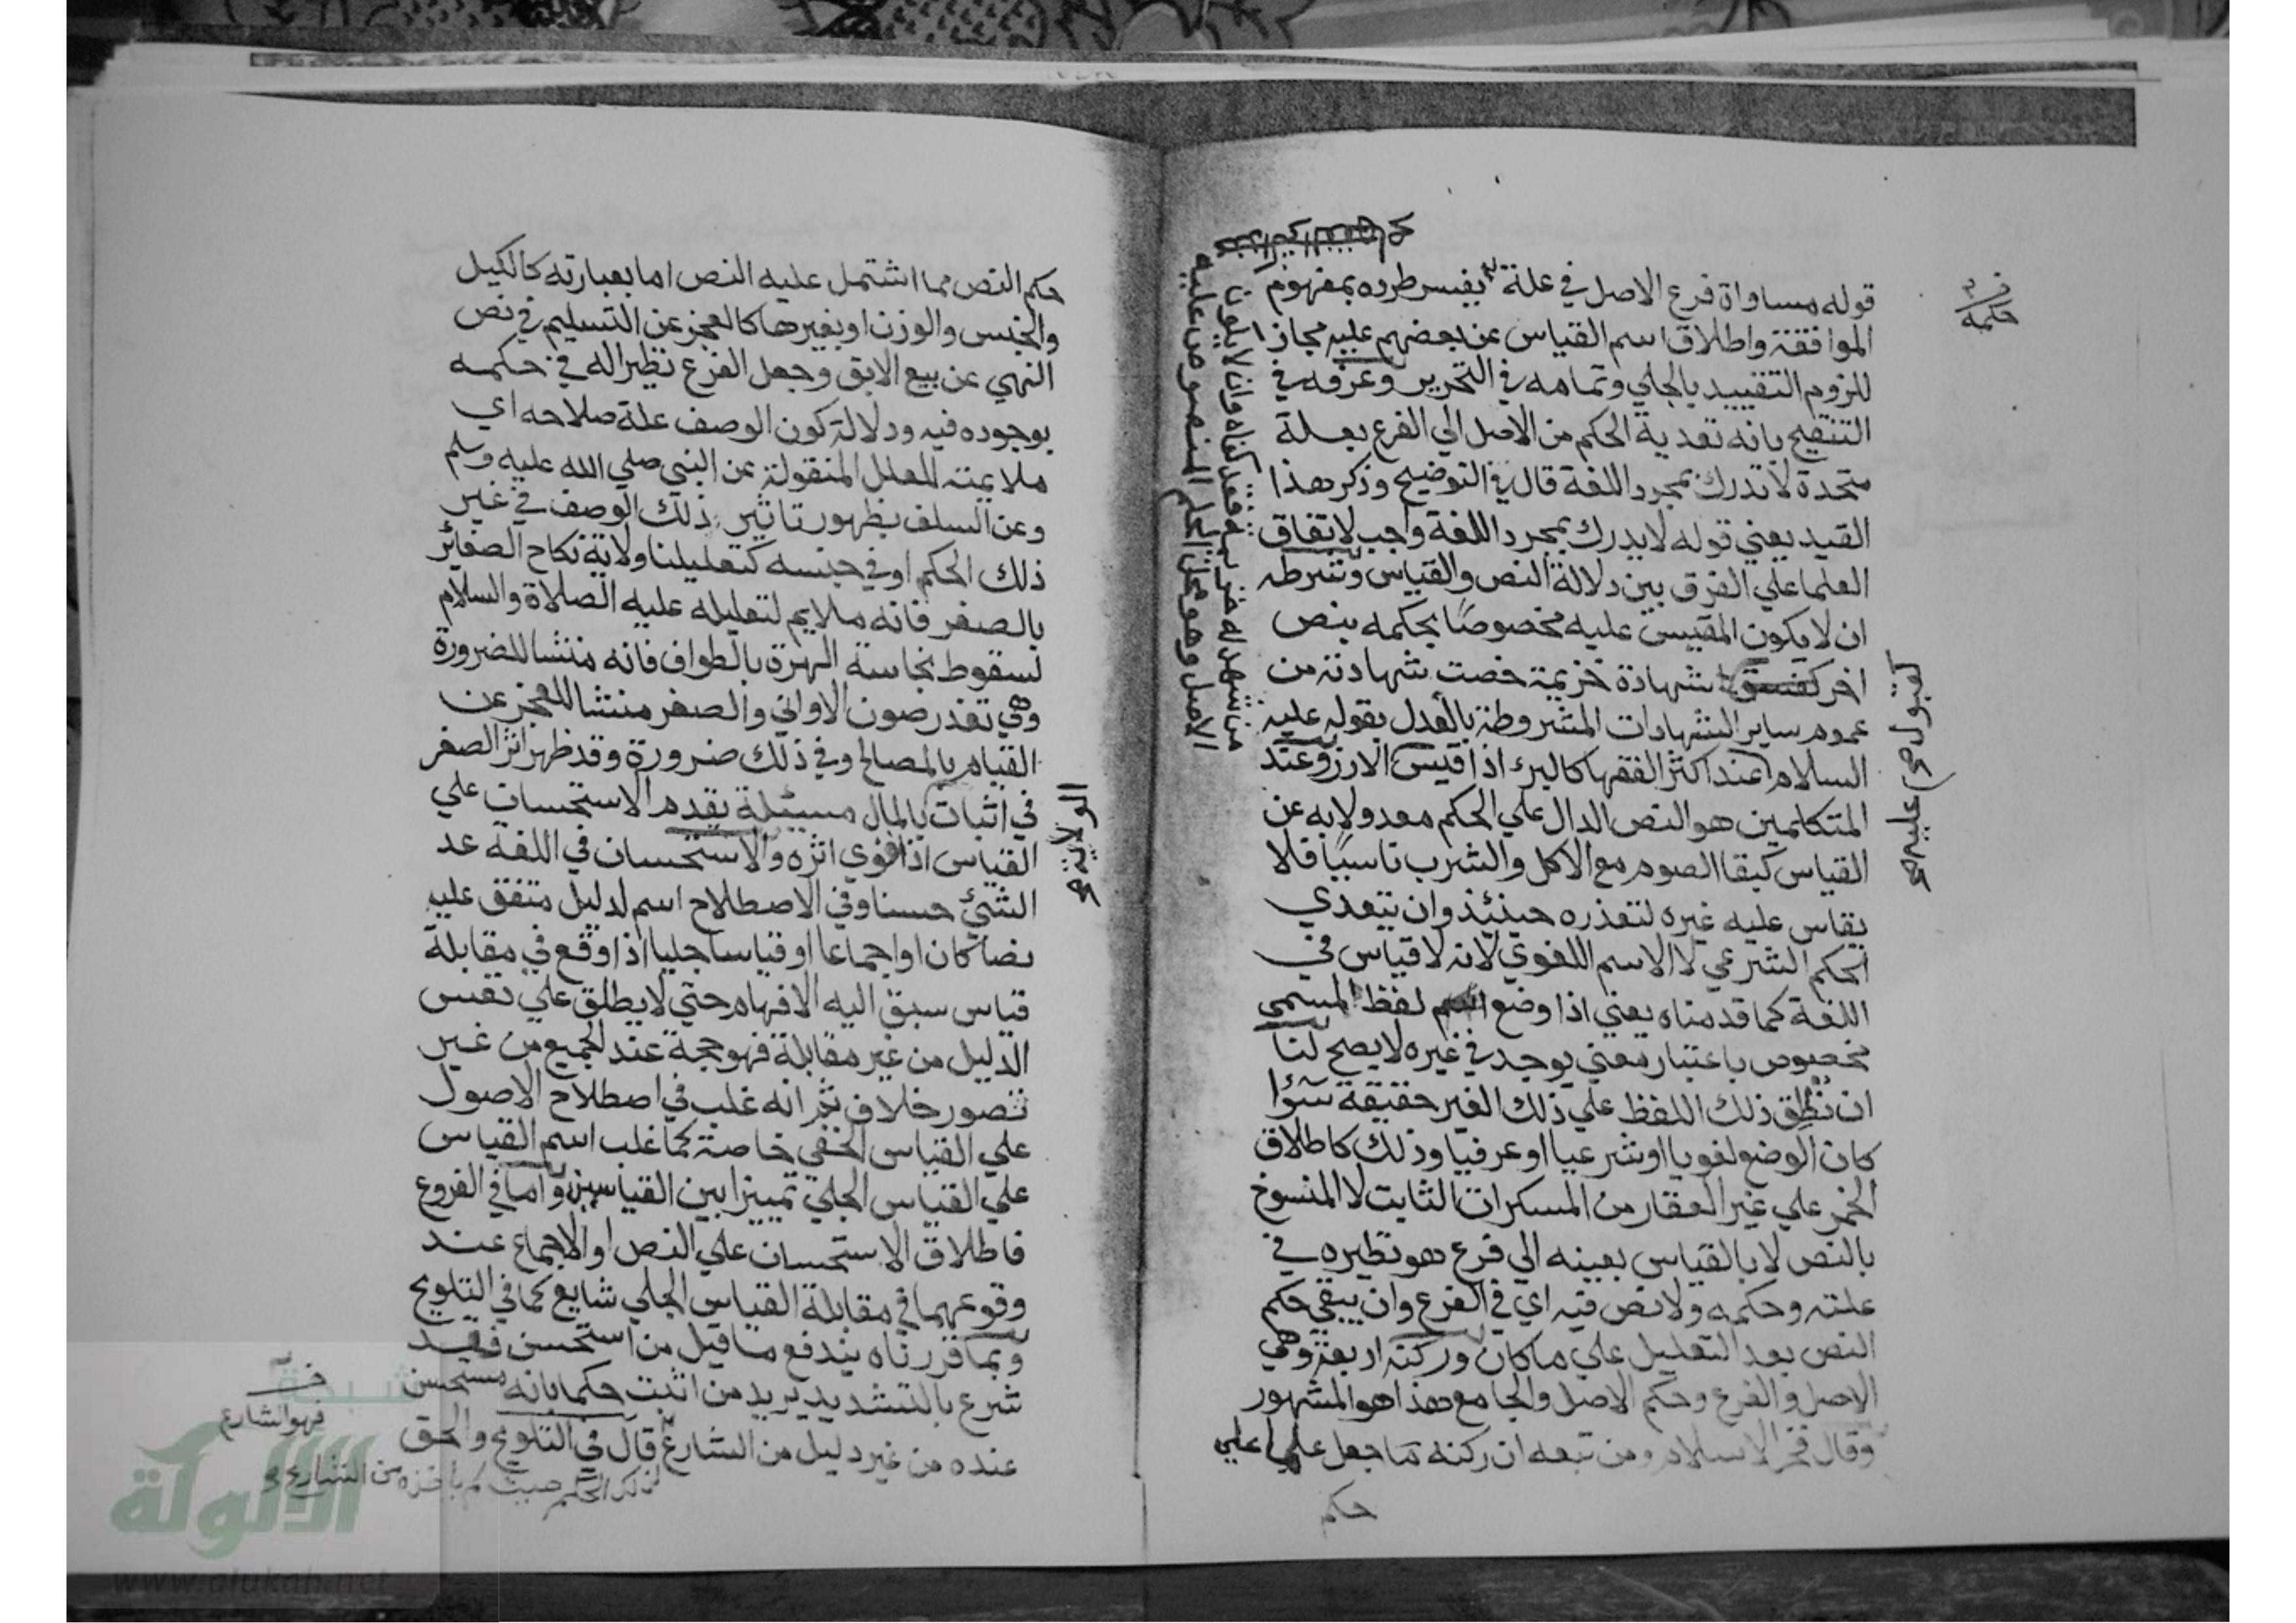 قوله مساواة فرع الاصل في علة يفسر طرده بمفهوم
الموافقة واطلاق اسم القياس عن بعضهم عليه مجاز
للزوم التقييد بالجلي وتمامه في التحرير وعرفه في
التنقيح بانه تعدية الحكم من الاصل الي الفرع بعلة
متحدة لا تدرك بمجرد اللغة قال في التوضيح وذكر هذا
القيد يعني قوله لا يدرك بمجرد اللغة واجب لاتفاق
العلما علي الفرق بين دلالة النص والقياس وشرطه
ان لا يكون المقيس عليه مخصوصا بحكمه بنص
اخر شهادة خزيمة خصت شهادته من
عموم ساير الشهادات المشروطة بالعدل بقوله عليه
السلام عند اكثر الفقها كالبر اذا قيس الارز وعند
المتكلمين هو النص الدال علي الحكم معدولا به عن
القياس كبقا الصوم مع الاكل والشرب ناسيا فلا
يقاس عليه غيره لتعذره حينئذ وان يتعدي
الحكم الشرعي لا الاسم اللغوي لانه لا قياس في
اللغة كما قدمناه يعني اذا وضع لفظ المسمي
مخصوص باعتبار معني يوجد في غيره لا يصح لنا
ان نطلق ذلك اللفظ علي ذلك الغير حقيقة سوا
كان الوضع لغويا او شرعيا او عرفيا وذلك كاطلاق
الخمر علي غير العقار من المسكرات الثابت لا المنسوخ
بالنص لا بالقياس بعينه الي فرع هو نظيره في
علته وحكمه ولا نص فيه اي في الفرع وان يبقي حكم
النص بعد التعليل علي ما كان وركنه اربعة وهي
الاصل والفرع وحكم الاصل والجامع هذا هو المشهور
وقال فخر الاسلام ومن تبعه ان ركنه ما جعل علما علي
حكم
حكمه
من شهد له خزيمة فقد كفاه وان لا يكون
الاصل وهو محل الحكم المنصوص عليه
حكم النص مما اشتمل عليه النص اما بعبارته كالكيل
والجنس والوزن او بغيرها كالعجز عن التسليم في نص
النهي عن بيع الابق وجعل الفرع نظيرا له في حكمه
بوجوده فيه ودلالة كون الوصف علة صلاحه اي
ملايمته للعلل المنقولة عن النبي صلي الله عليه وسلم
وعن السلف بظهور تاثير ذلك الوصف في غير
ذلك الحكم او في جنسه كتعليلنا ولاية نكاح الصغائر
بالصغر فانه ملايم لتعليله عليه الصلاة والسلام
لسقوط نجاسة الهرة بالطواف فانه منشا للضرورة
وهي تعذر صون الاواني والصغر منشا للعجز عن
القيام بالمصالح وفي ذلك ضرورة وقد ظهر اثر الصغر
في اثبات بالمال مسئلة يقدم الاستحسان علي
القياس اذا قوي اثره والاستحسان في اللغة عد
الشئ حسنا وفي الاصطلاح اسم لدليل متفق عليه
نصا كان او اجماعا او قياسا جليا اذا وقع في مقابلة
قياس سبق اليه الافهام حتي لا يطلق علي نفس
الدليل من غير مقابلة فهو حجة عند الجميع من غير
تصور خلاف ثم انه غلب في اصطلاح الاصول
علي القياس الخفي خاصة كما غلب اسم القياس
علي القياس الجلي تمييزا بين القياسين واما في الفروع
فاطلاق الاستحسان علي النص او الاجماع عند
وقوعهما في مقابلة القياس الجلي شايع كما في التلويح
وبما قررناه يندفع ما قيل من استحسن فقد
شرع بالتشديد يريد من اثبت حكما بانه مستحسن
عنده من غير دليل من الشارع قال في التلويح والحق
الولاية
فهو الشارع
لذلك الحكم حيث لم ياخذه من الشارع
شبكة
الألوكة
www.alukah.net